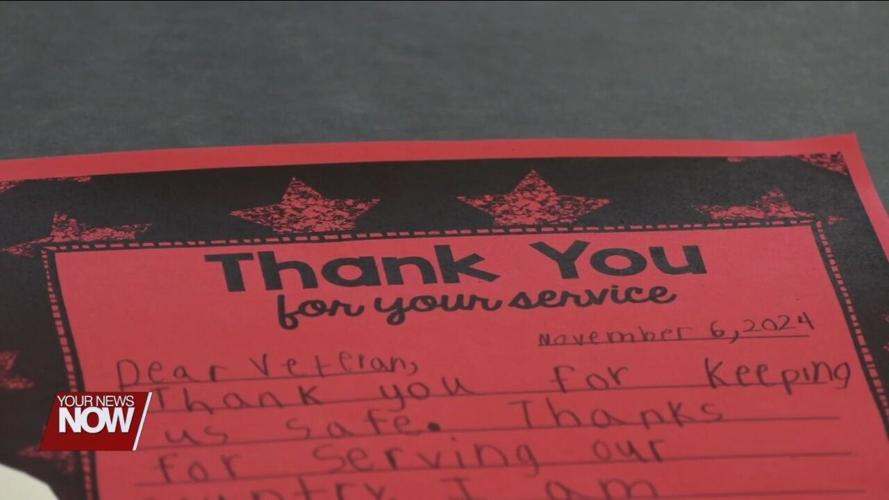 Thank You
for your service
November 6, 2024
Dear Veteran,
Thank you for Keeping
us safe. Thanks
for serving our
country I am
YOUR NEWS
NOW